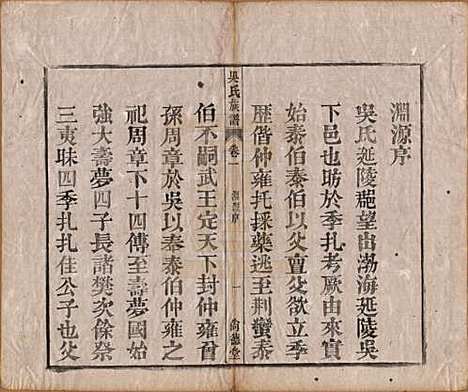 淵源序
吳氏延陵郡望由渤海延陵吳
下邑也昉於季扎考厥由來實
始泰伯泰伯以父亶父欲立季
歷偕仲雍托採藥逃至荆蠻泰
吳氏族譜 卷一 淵源序 一 尚德堂
伯不嗣武王定天下封仲雍曾
孫周章於吳以奉泰伯仲雍之
祀周章下十四傳至壽夢國始
強大壽夢四子長諸樊次餘祭
三夷昧四季扎扎佳公子也父